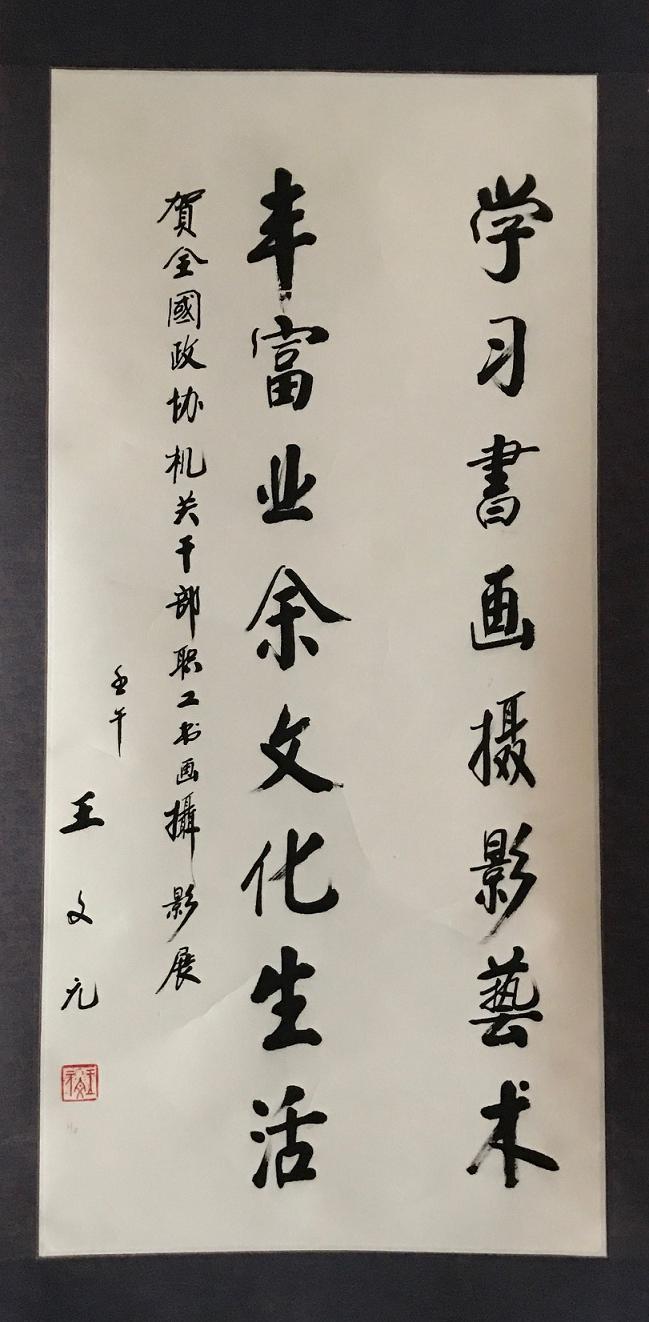 学习書画摄影藝术
丰富业余文化生活
賀全國政协机关干部职工书画攝影展
壬午
王文元